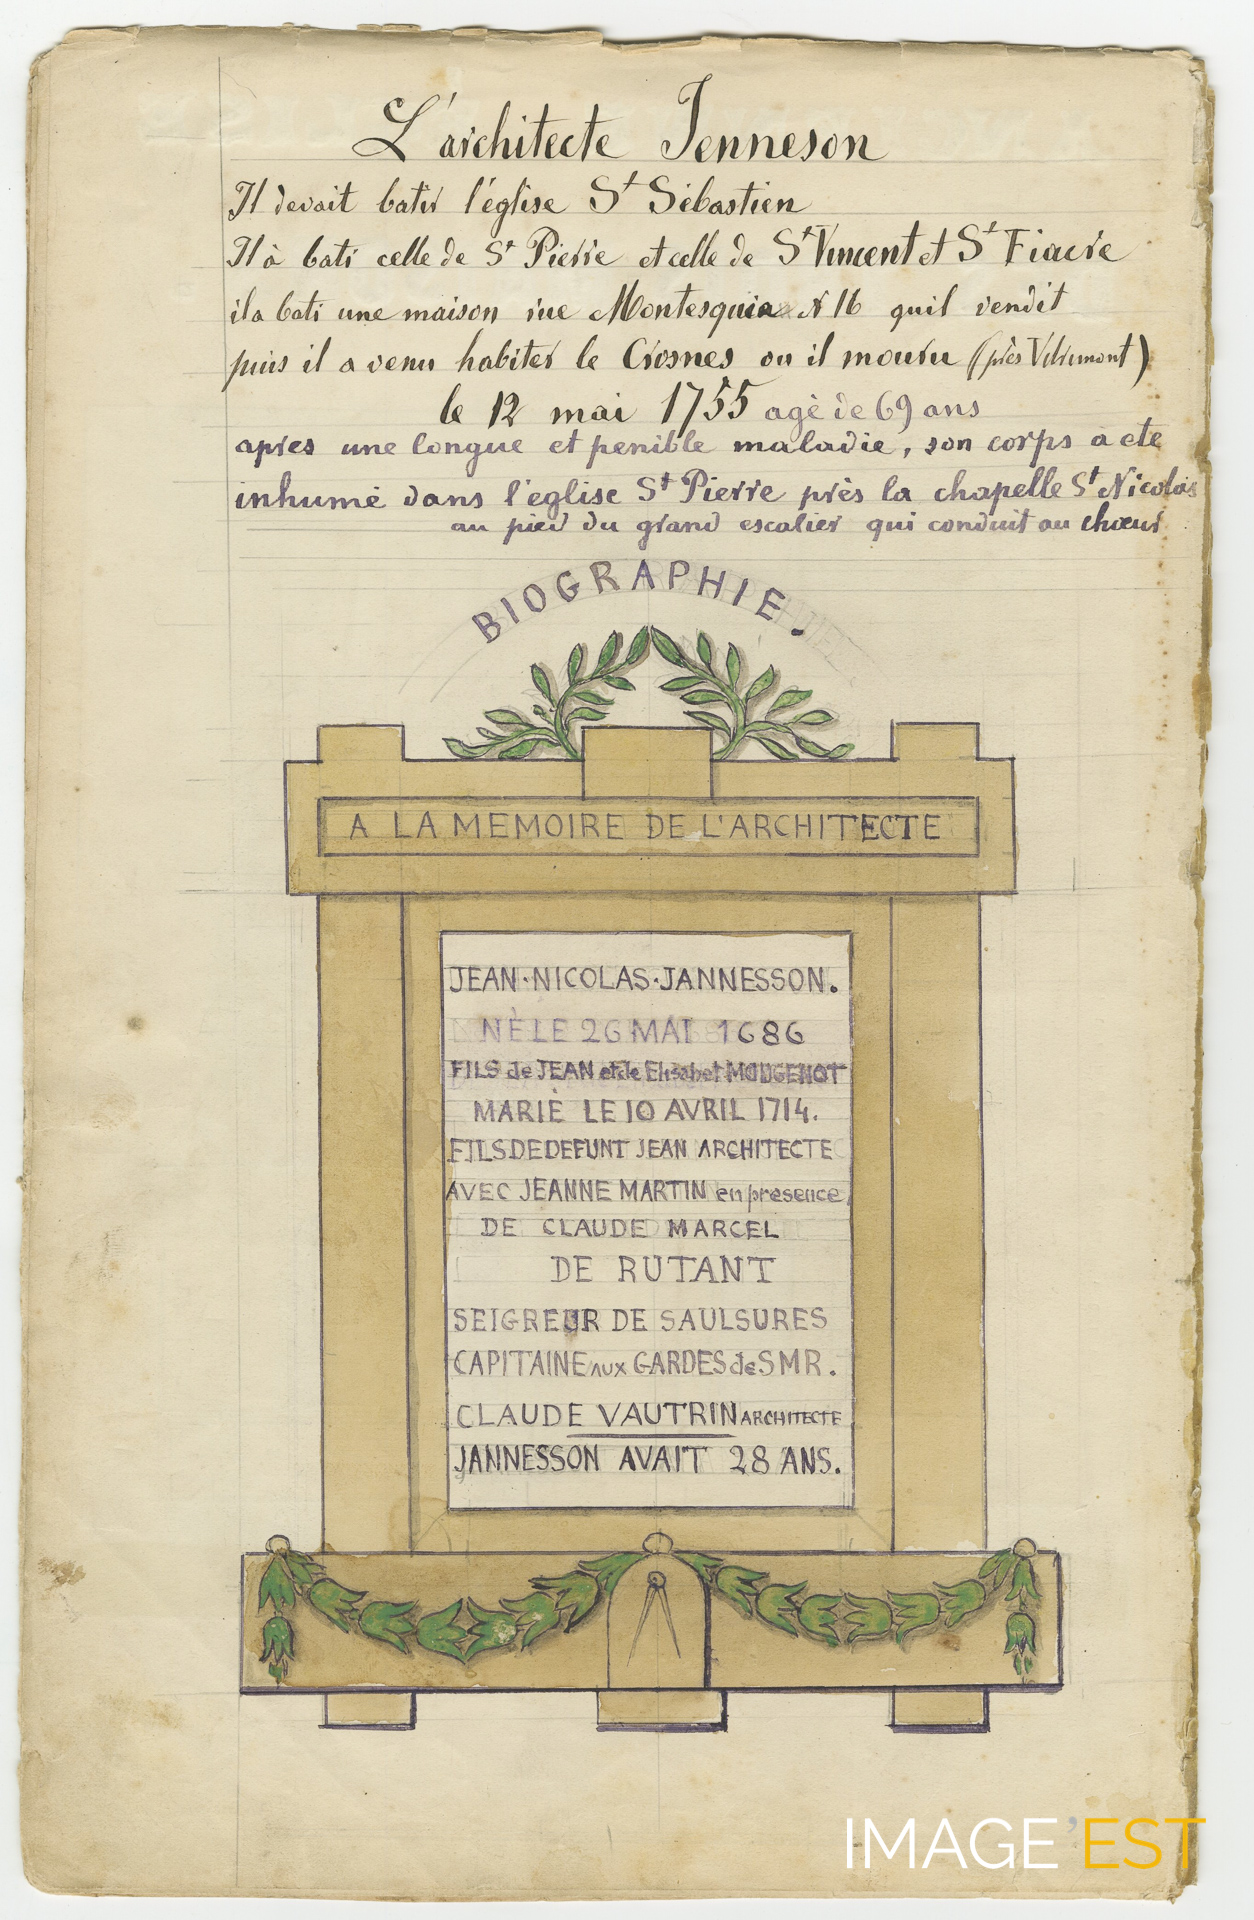 L'architecte Jenneson
Il devait batir l'église St Sébastien
Il à bati celle de St Pierre et celle de St Vincent et St Fiacre
il a bati une maison rue Montesquieu N 16 quil vendit
puis il a venu habiter le Crosnes ou il mouru (près Vdrumont)
le 12 mai 1755 agé de 69 ans
apres une longue et penible maladie, son corps a ete
inhumé dans l'eglise St Pierre près la chapelle St Nicolas
au pied du grand escalier qui conduit au chœur
BIOGRAPHIE.
A LA MEMOIRE DE L'ARCHITECTE
JEAN·NICOLAS·JANNESSON.
NÈ LE 26 MAI 1686
FILS de JEAN et de Elisabet MOUGENOT
MARIÈ LE 10 AVRIL 1714.
FILS DE DEFUNT JEAN ARCHITECTE
AVEC JEANNE MARTIN en presence
DE CLAUDE MARCEL
DE RUTANT
SEIGREUR DE SAULSURES
CAPITAINE AUX GARDES de SMR.
CLAUDE VAUTRIN ARCHITECTE
JANNESSON AVAIT 28 ANS.
IMAGE'EST